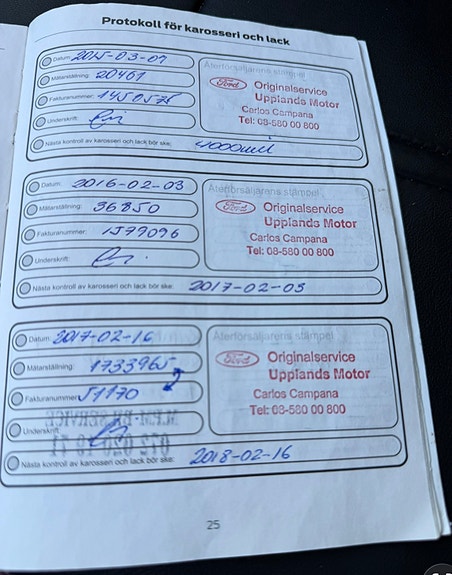 Protokoll för karosseri och lack
Datum: 2015-03-07
Mätarställning: 20461
Fakturanummer: 1450575
Underskrift:
Nästa kontroll av karosseri och lack bör ske: 4000mil
Återförsäljarens stämpel
Ford Originalservice
Upplands Motor
Carlos Campana
Tel: 08-580 00 800
Datum: 2016-02-03
Mätarställning: 36850
Fakturanummer: 1577096
Underskrift:
Nästa kontroll av karosseri och lack bör ske: 2017-02-03
Återförsäljarens stämpel
Ford Originalservice
Upplands Motor
Carlos Campana
Tel: 08-580 00 800
Datum: 2017-02-16
Mätarställning: 1733965
Fakturanummer: 51170
Underskrift:
Nästa kontroll av karosseri och lack bör ske: 2018-02-16
Återförsäljarens stämpel
Ford Originalservice
Upplands Motor
Carlos Campana
Tel: 08-580 00 800
25